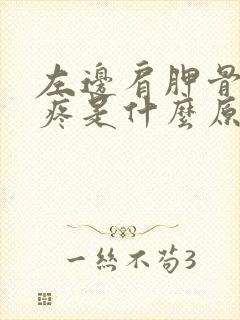 左邊肩胛骨
疼是什麼原
一絲不苟3